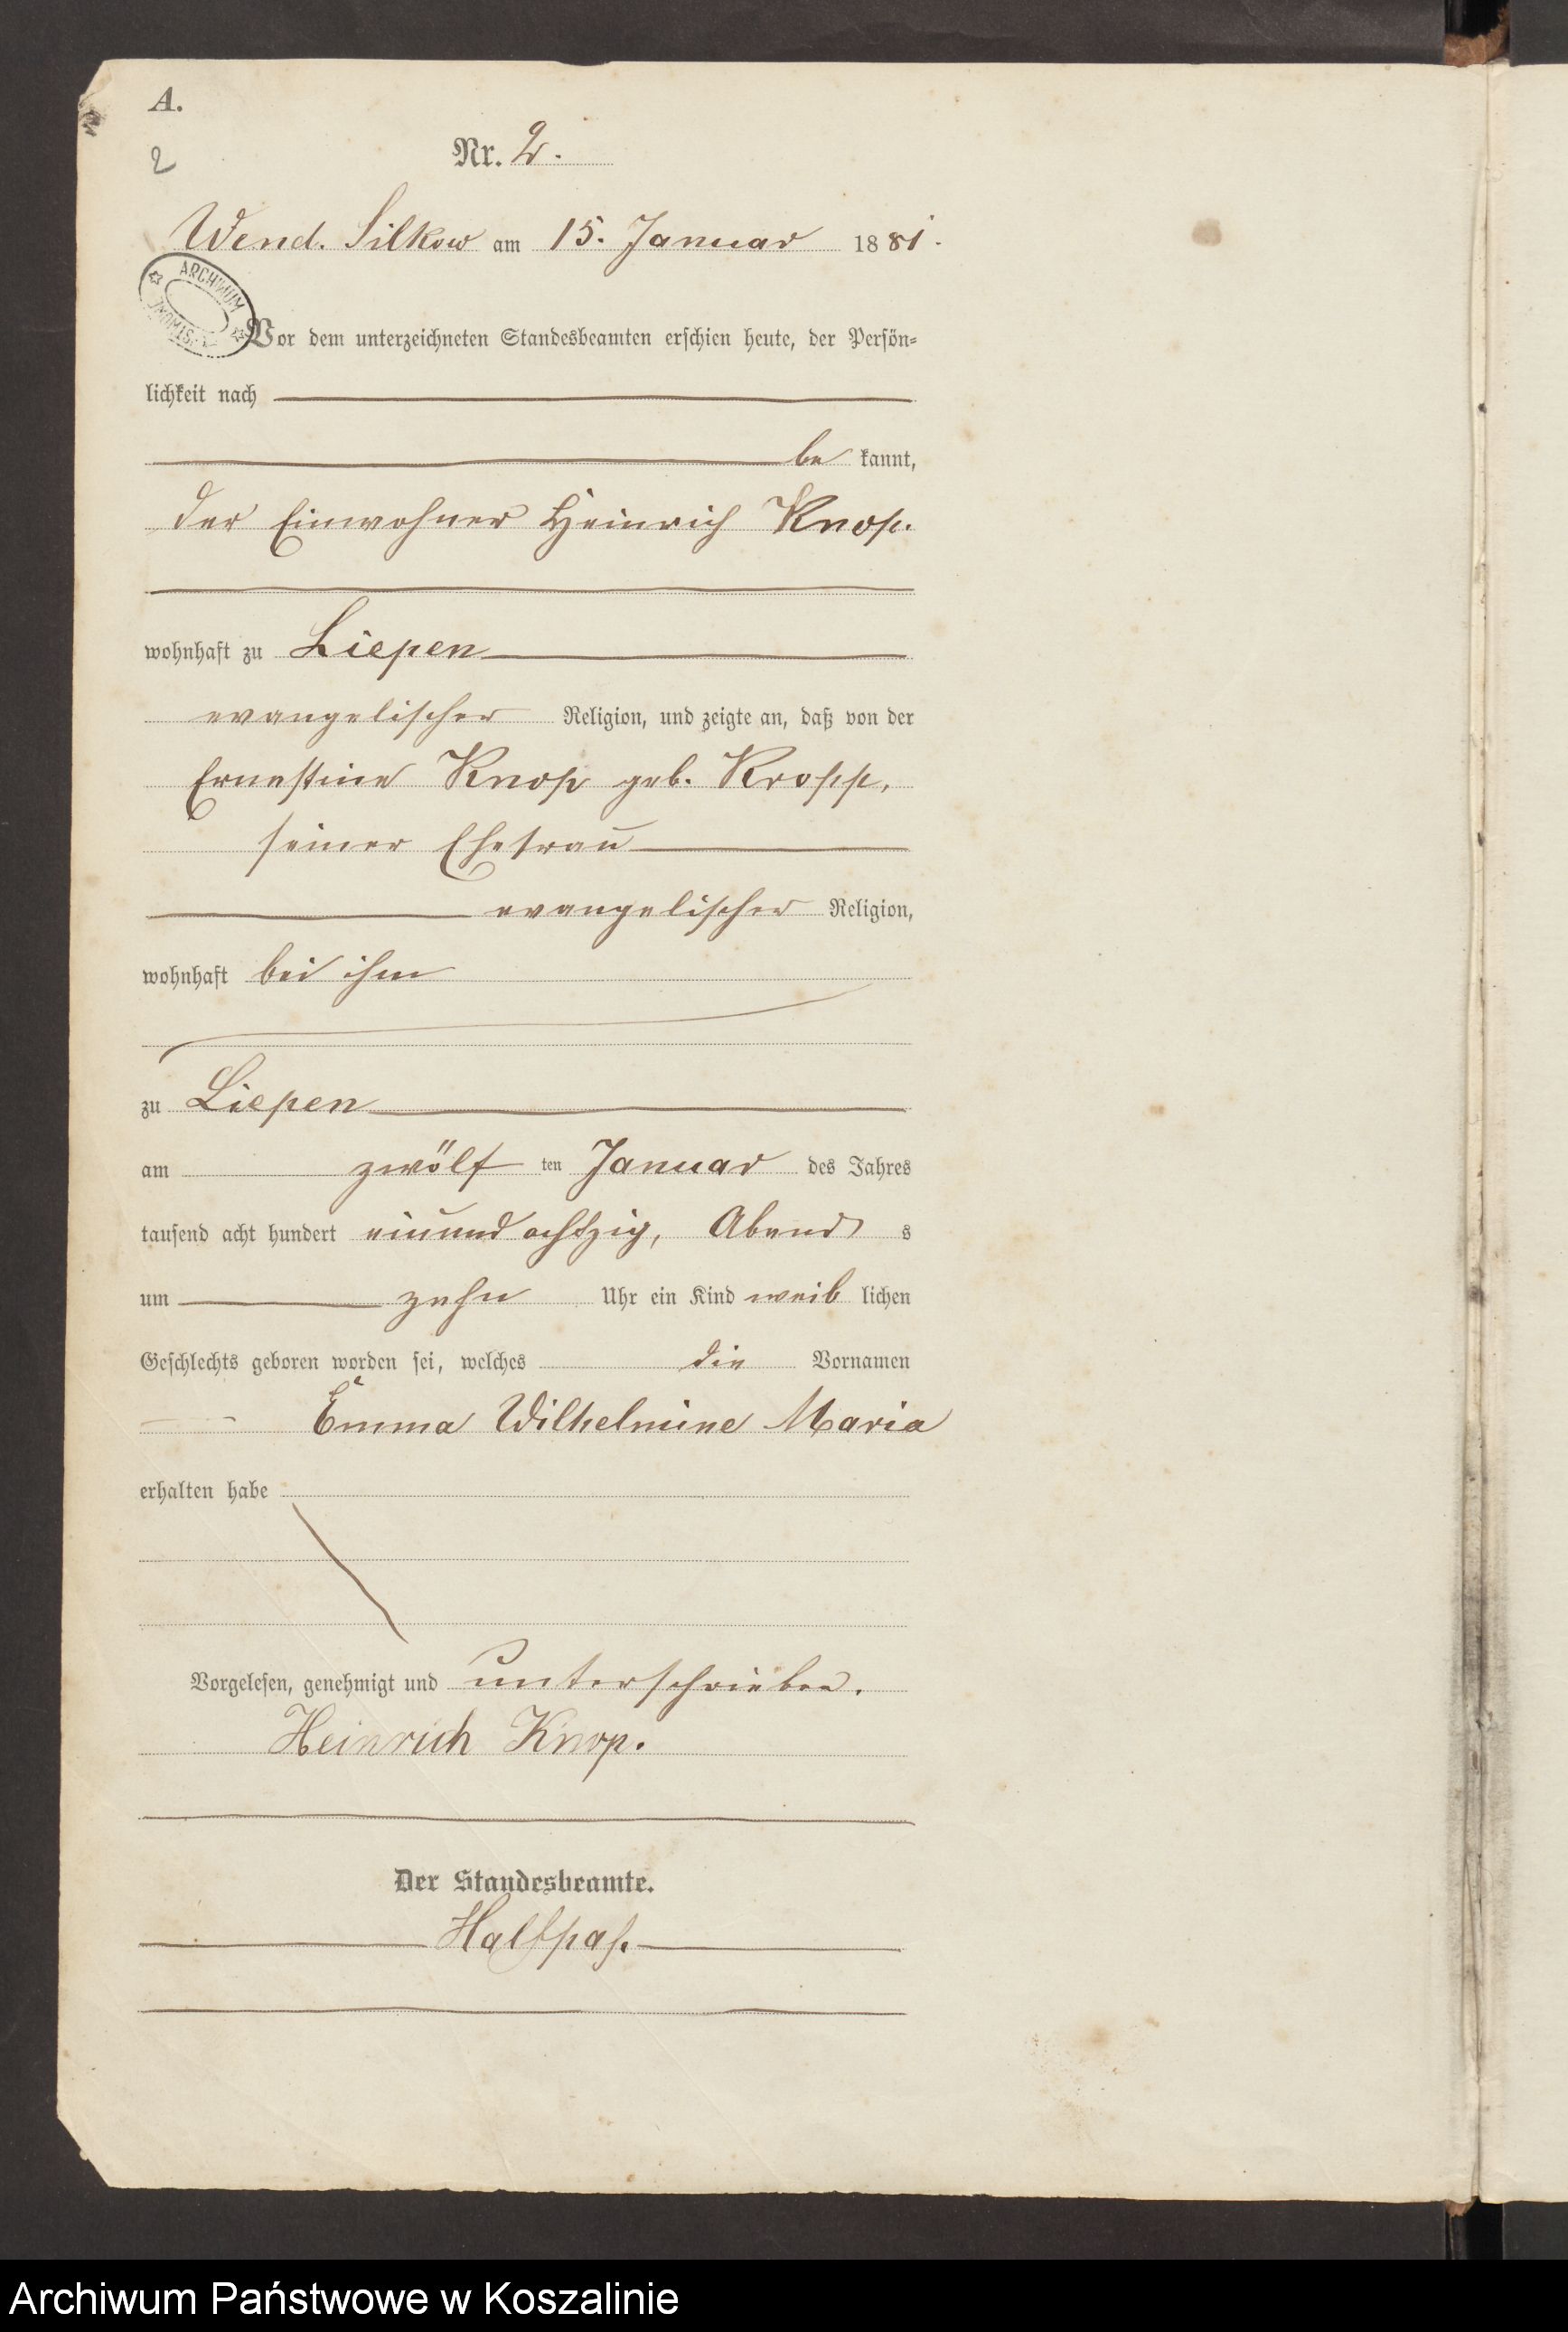 A.
2
Nr. 2.
Wend. Silkow am 15. Januar 1881.
ARCHIWUM
Vor dem unterzeichneten Standesbeamten erschien heute, der Persön=
lichkeit nach
be kannt,
der Einwohner Heinrich Knop.
wohnhaft zu Liepen
evangelischer Religion, und zeigte an, daß von der
Ernestine Knop geb. Kropp,
seiner Ehefrau
evangelischer Religion,
wohnhaft bei ihm
zu Liepen
am zwölf ten Januar des Jahres
tausend acht hundert einundachtzig, Abend s
um zehn Uhr ein Kind weib lichen
Geschlechts geboren worden sei, welches die Vornamen
Emma Wilhelmine Maria
erhalten habe
Vorgelesen, genehmigt und unterschrieben.
Heinrich Knop.
Der Standesbeamte.
Halfpap.
Archiwum Państwowe w Koszalinie